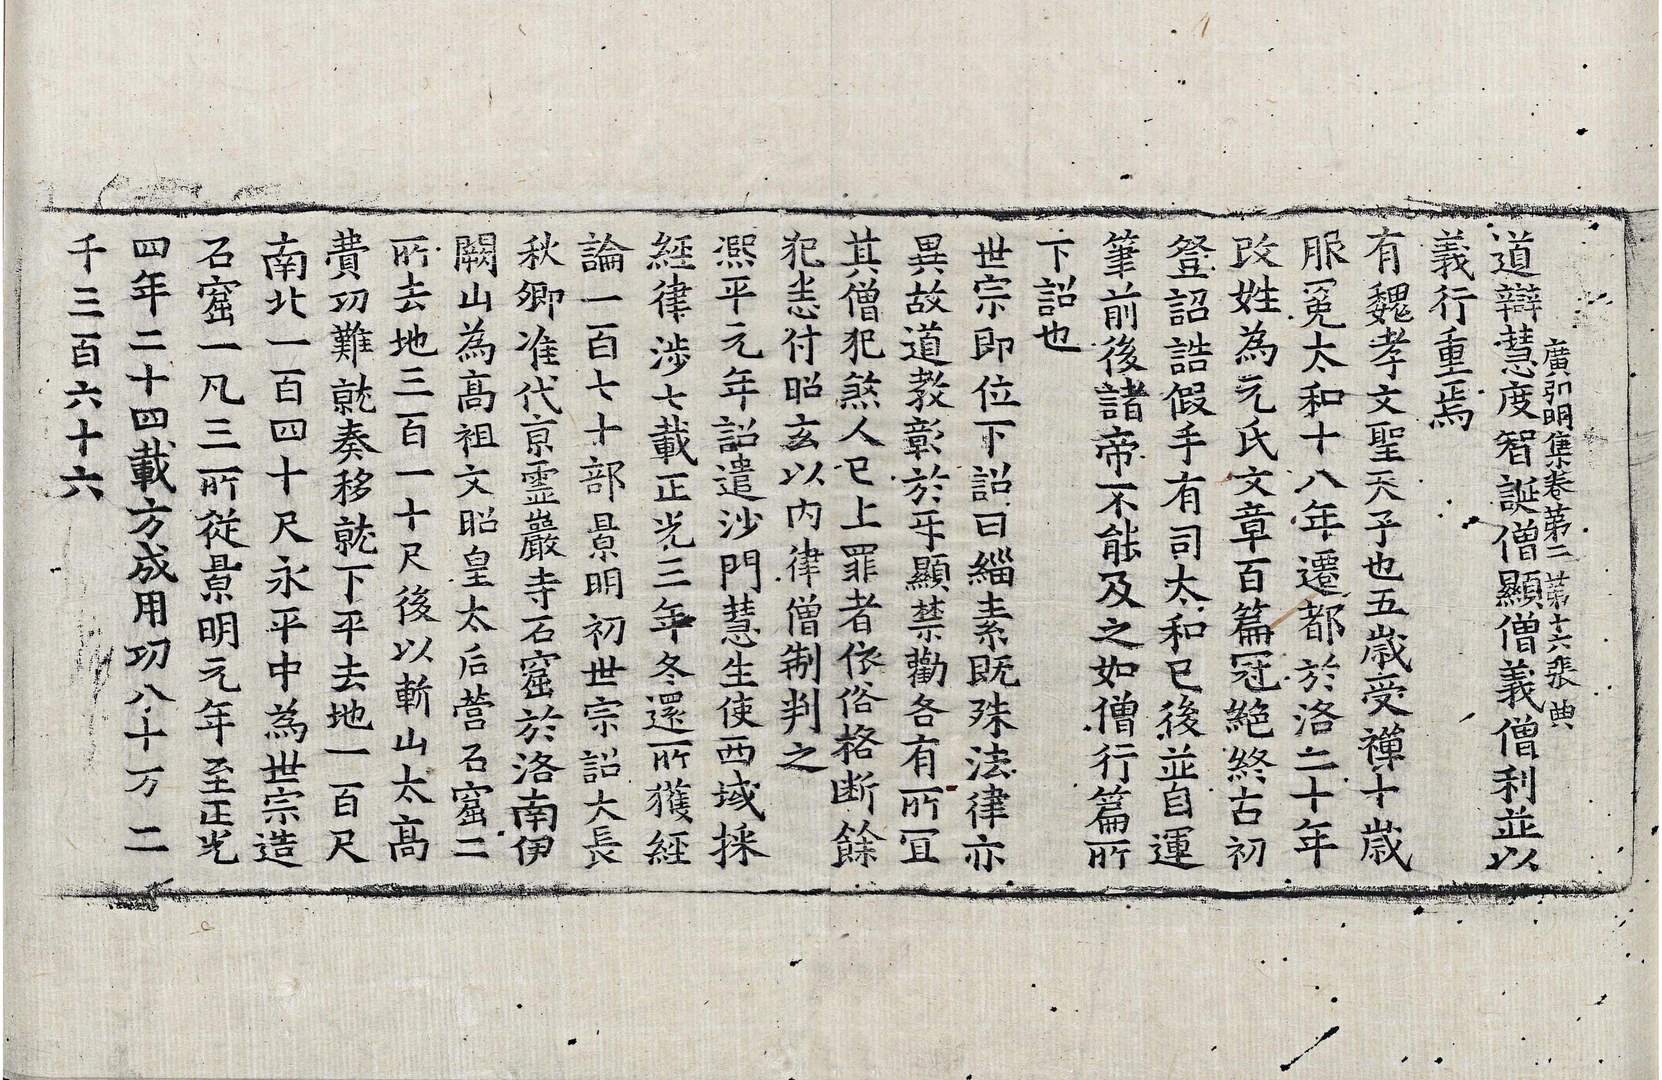 廣弘明集卷第二 第十六張 典
道辯慧度智誕僧顯僧義僧利並以
義行重焉
有魏孝文聖天子也五歲受禪十歲
服冕太和十八年遷都於洛二十年
改姓為元氏文章百篇冠絕終古初
登詔誥假手有司太和已後並自運
筆前後諸帝不能及之如僧行篇所
下詔也
世宗即位下詔曰緇素既殊法律亦
異故道教彰於乎顯禁勸各有所宜
其僧犯煞人已上罪者依俗格断餘
犯悉付昭玄以內律僧制判之
熙平元年詔遣沙門慧生使西域採
經律涉七載正光三年冬還所獲經
論一百七十部景明初世宗詔大長
秋卿准代京靈巖寺石窟於洛南伊
闕山為高祖文昭皇太后營石窟二
所去地三百一十尺後以斬山太高
費功難就奏移就下平去地一百尺
南北一百四十尺永平中為世宗造
石窟一凡三所從景明元年至正光
四年二十四載方成用功八十万二
千三百六十六